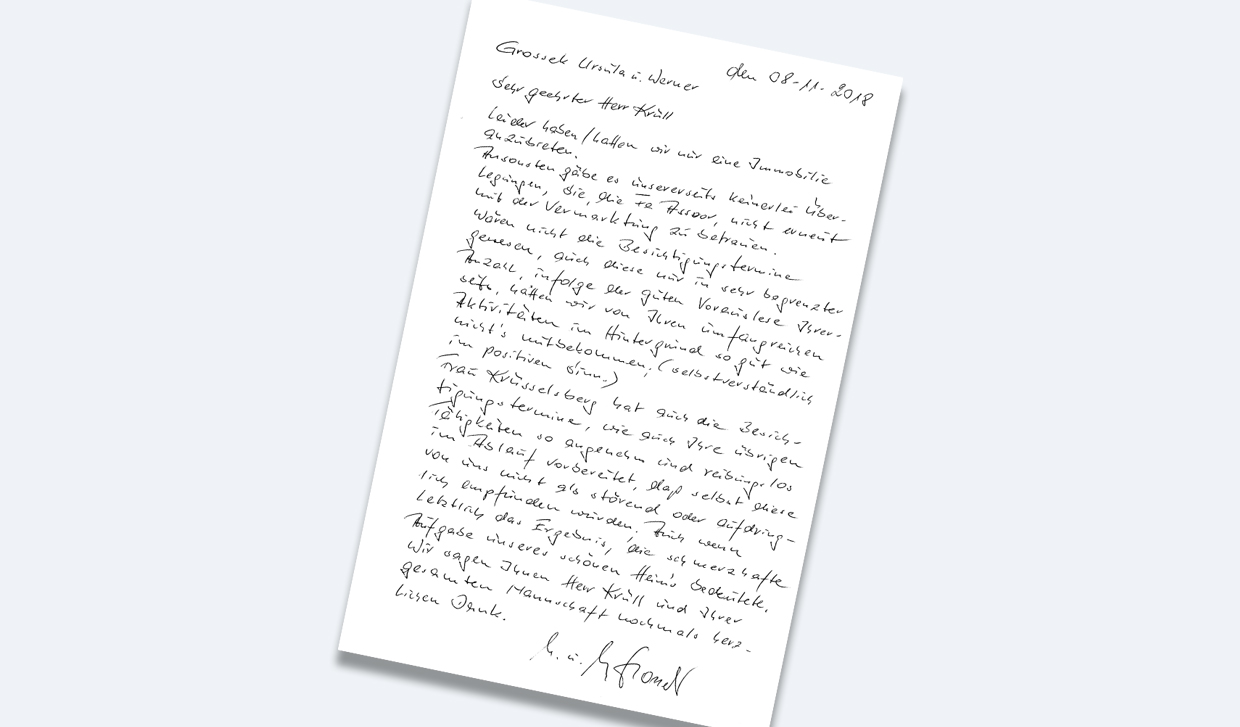 Grossek Ursula u. Werner
den 08-11-2018
Sehr geehrter Herr Krüll
Leider haben/hatten wir nur eine Immobilie
anzubieten.
Ansonsten gäbe es unsererseits keinerlei Über-
legungen, Sie, die Fa Assoor, nicht erneut
mit der Vermarktung zu betrauen.
Wären nicht die Besichtigungstermine
gewesen, auch diese nur in sehr begrenzter
Anzahl, infolge der guten Vorauslese Ihrer-
seits, hätten wir von Ihren umfangreichen
Aktivitäten im Hintergrund so gut wie
nicht's mitbekommen, (selbstverständlich
im positiven Sinn.)
Frau Krüsselsberg hat auch die Besich-
tigungstermine, wie auch Ihre übrigen
Tätigkeiten so angenehm und reibungslos
im Ablauf vorbereitet, daß selbst diese
von uns nicht als störend oder aufdring-
lich empfunden wurden. Auch wenn
Letztlich das Ergebnis, die schmerzhafte
Aufgabe unseres schönen Heim's bedeutete.
Wir sagen Ihnen Herr Krüll und Ihrer
gesamten Mannschaft nochmals herz-
lichen Dank.